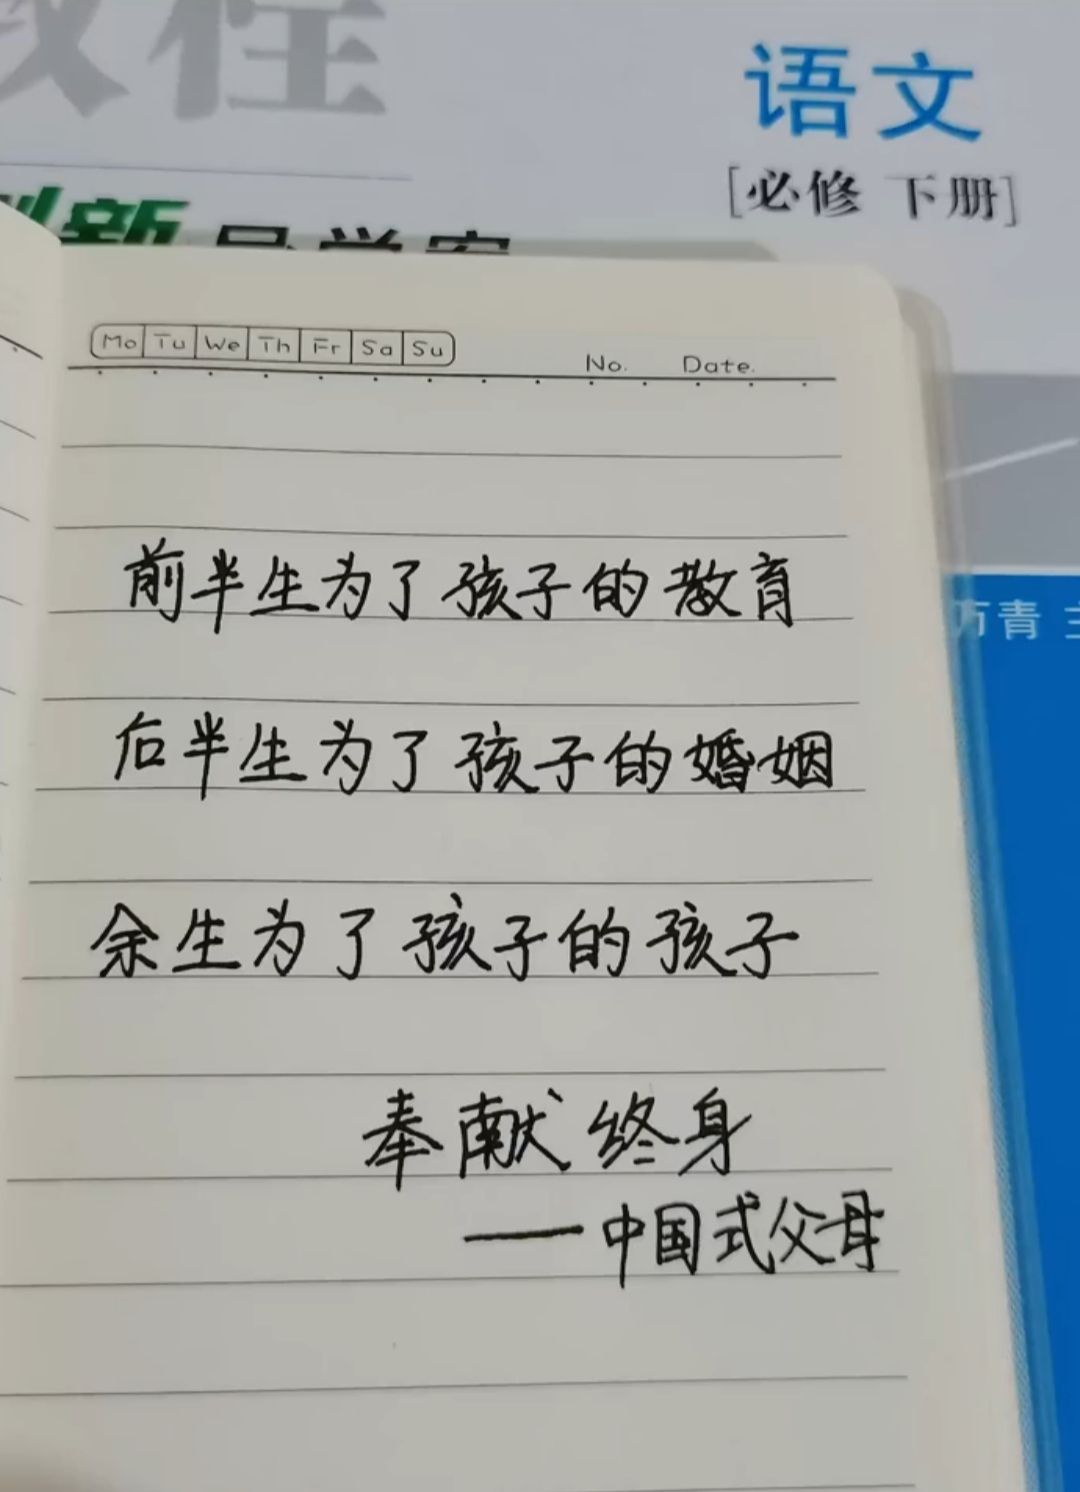 教程
语文
[必修 下册]
创新导学案
Mo Tu We Th Fr Sa Su
No. Date.
前半生为了孩子的教育
万青 主
后半生为了孩子的婚姻
余生为了孩子的孩子
奉献终身
——中国式父母